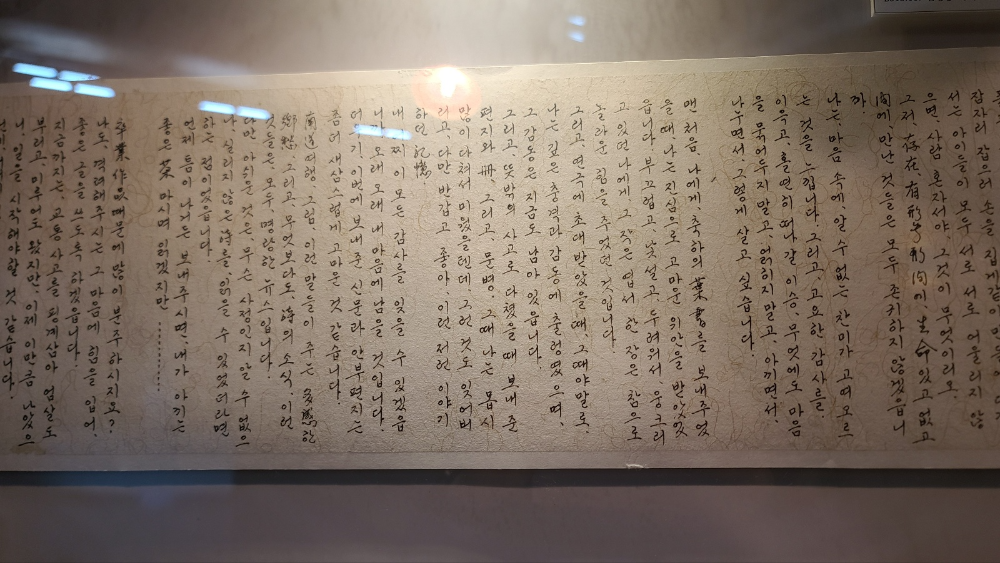 잡자리 잡으려 손을 집게같이
서는 아이들이 모두 서로 서로 어울리지 않
으면 사람 혼자서야, 그것이 무엇이리오.
그저 存在, 有形 無形間의 生命 있고 없고
間에 만난 것들은 모두 존귀하지 않겠습니
까.
나는 마음 속에, 알 수 없는 찬미가 고여 오르
는 것을 느낍니다. 그리고, 고요한 감사를.
이윽고, 홀연히 떠나갈 이승 무엇에도 마음
을 묶어두지 말고, 얽히지 말고, 아끼면서,
나누면서, 그렇게 살고 싶습니다.
맨 처음, 나에게 축하의 葉書를 보내주었
을 때, 나는 진심으로 고마운 위안을 받았었
읍니다. 부끄럽고, 낯설고, 두려워서, 웅크리
고 있던 나에게, 그 작은 엽서 한 장은 참으로
놀라운 힘을 주었던 것입니다.
그리고, 연극에 초대 받았을 때, 그때야말로,
나는 깊은 충격과 감동에 출렁였으며,
그 감동은 지금도 남아 있읍니다.
그리고, 뜻밖의 사고로 다쳤을 때 보내 준
편지와 冊, 그리고, 문병. 그때 나는 몹시
많이 다쳐서 미웠을텐데 그런 것도 잊어버
리고, 다만 반갑고 좋아 이런저런 이야기
하던 記憶.
내 어찌 이 모든 감사를 잊을 수 있겠읍
니까. 오래 오래 내 마음에 남을 것입니다.
더우기, 이번에 보내준 신문과 안부편지는
좀 더 새삼스럽게 고마운 것 같습니다.
間道 여행, 그럼 이런 말들이 주는 多感한
鄕愁, 그리고 무엇보다도, 詩의 소식, 이런
것들은, 모두, 명랑한 뉴스입니다.
다만, 아쉬운 것은 무슨 사연인지 알 수 없으
나, 실리지 않은 詩를, 읽을 수 있었더라면
하는 점이었습니다.
언제 틈이 나거든 보내주시면, 내가 아끼는
좋은 茶 마시며 읽겠지만
卒業作
때문에 많이 분주하시지요?
나도, 격려해주시는 그 마음에 힘을 입어,
좋은 글을 쓰도록 하겠습니다.
지금까지는, 교통사고를 핑계삼아 엄살도
부리고 미루어도 왔지만, 이제 이만큼 나았으
니, 일을 시작해야 할 것 같습니다.